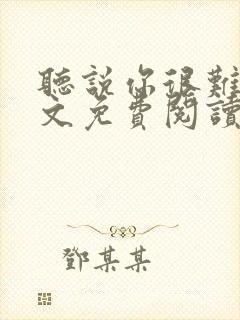 聽說你很難
文免費閱讀
鄧某某